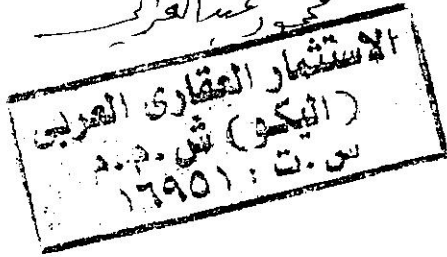 الاستثمار العقارى العربى
(اليكو) ش.م.م
س.ت : ١٦٩٥١